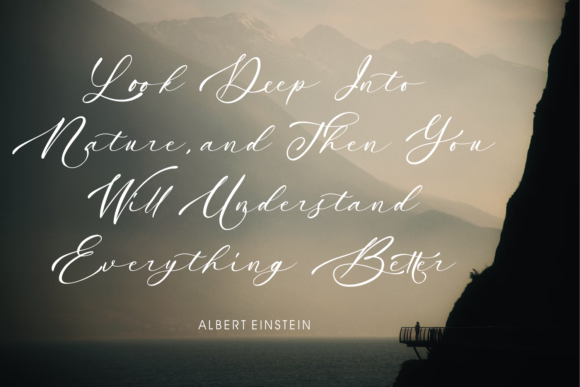 Look Deep Into
Nature, and Then You
Will Understand
Everything Better
ALBERT EINSTEIN